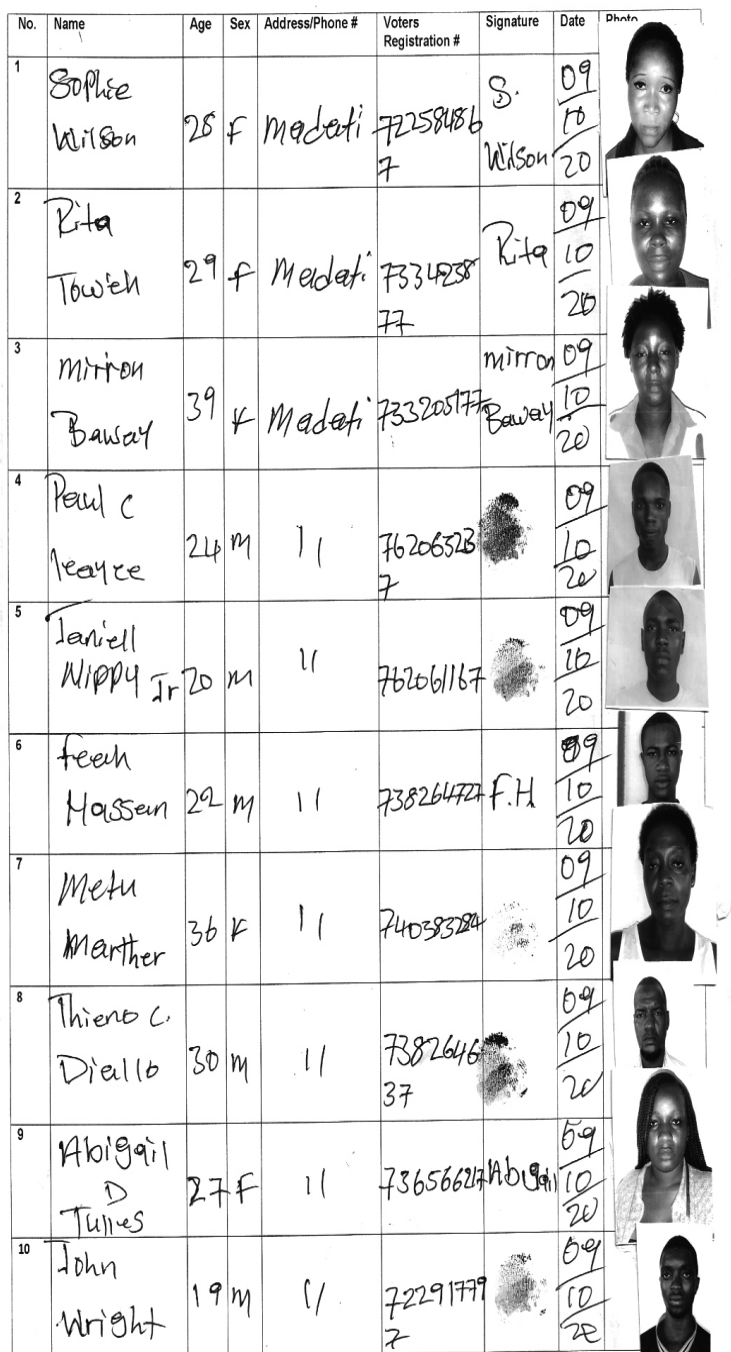 No. Name Age Sex Address/Phone # Voters Registration # Signature Date Photo
1 Sophie Wilson 28 F Madati 722584867 S. Wilson 09/10/20
2 Rita Toweh 29 F Madati 733423877 Rita 09/10/20
3 Mirron Baway 39 F Madati 733205177 Mirron Baway 09/10/20
4 Paul C 24 M 11 762063237 09/10/20
5 Nippy Jr 20 M 11 762061167 09/10/20
6 Feeh Hassan 22 M 11 738264727 F.H 09/10/20
7 Metu Marther 36 F 11 740383284 09/10/20
8 Thieno C. Diallo 30 M 11 738264637 09/10/20
9 Abigail D 27 F 11 736566217 Abigail 09/10/20
10 John Wright 19 M 11 722917797 09/10/20